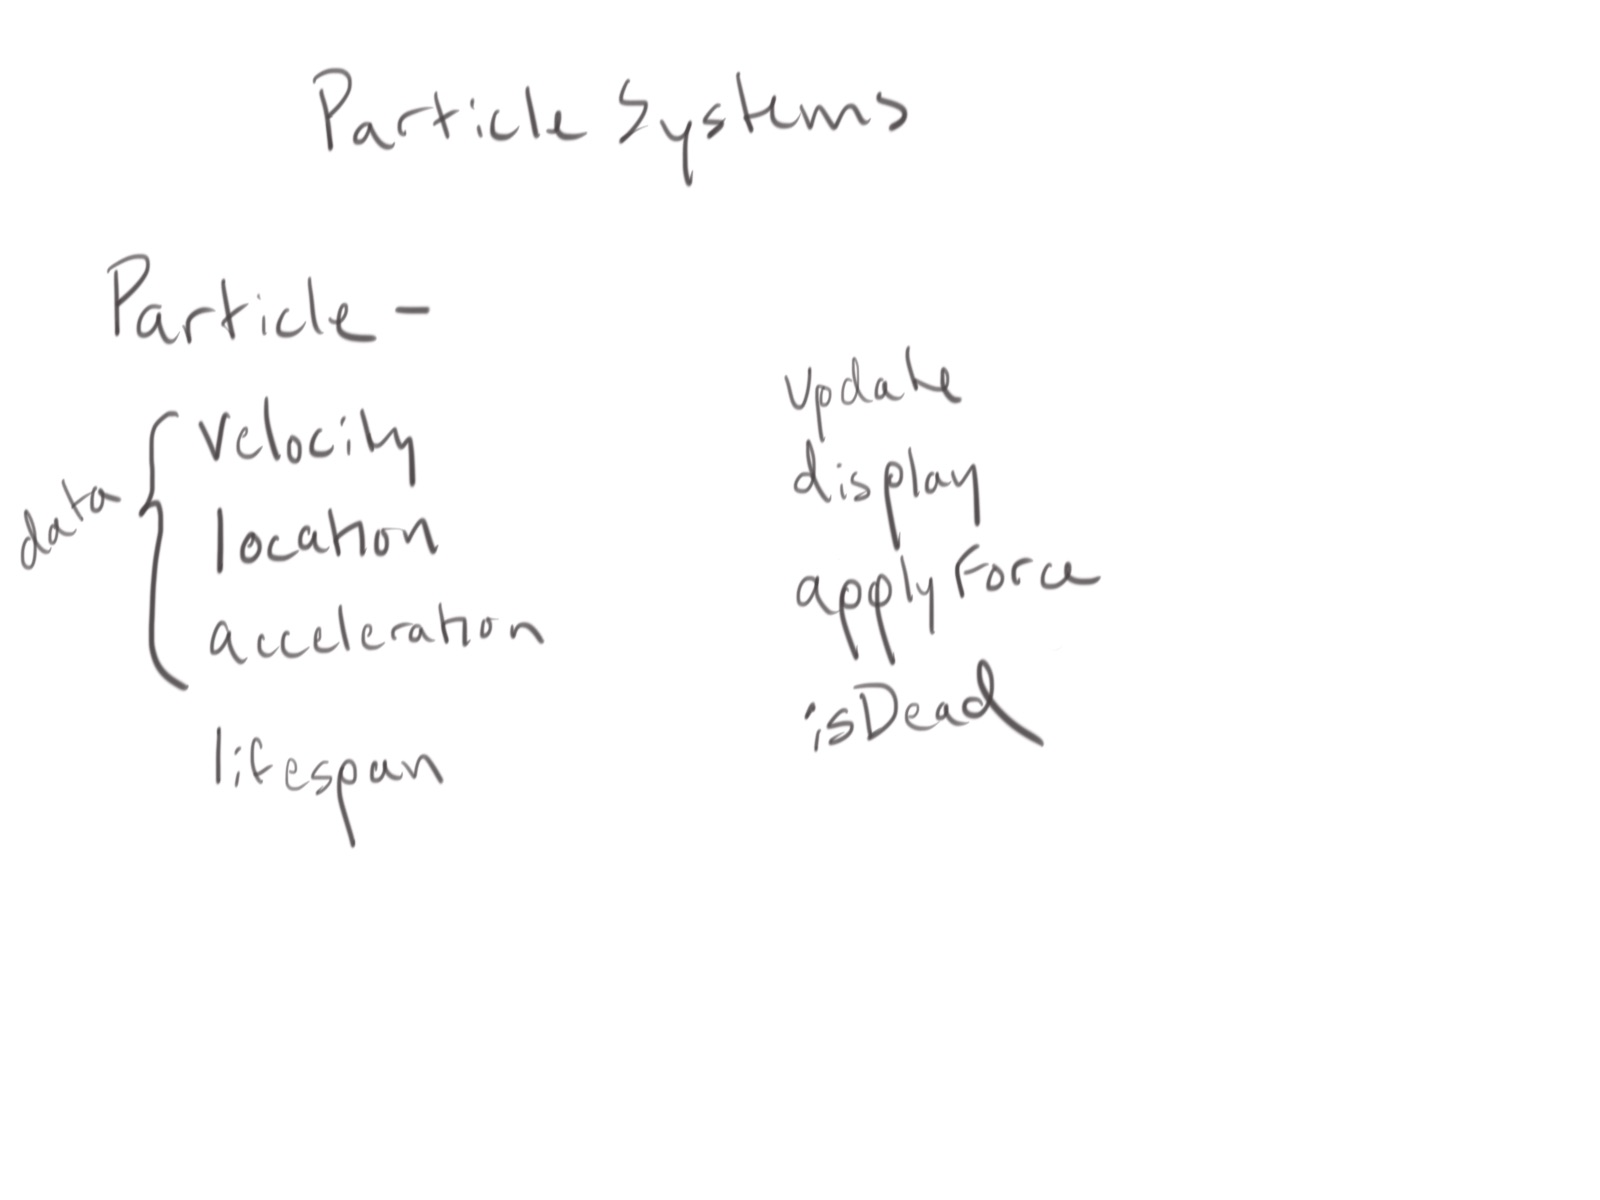 Particle Systems
Particle -
data
velocity
location
acceleration
lifespan
update
display
applyForce
isDead